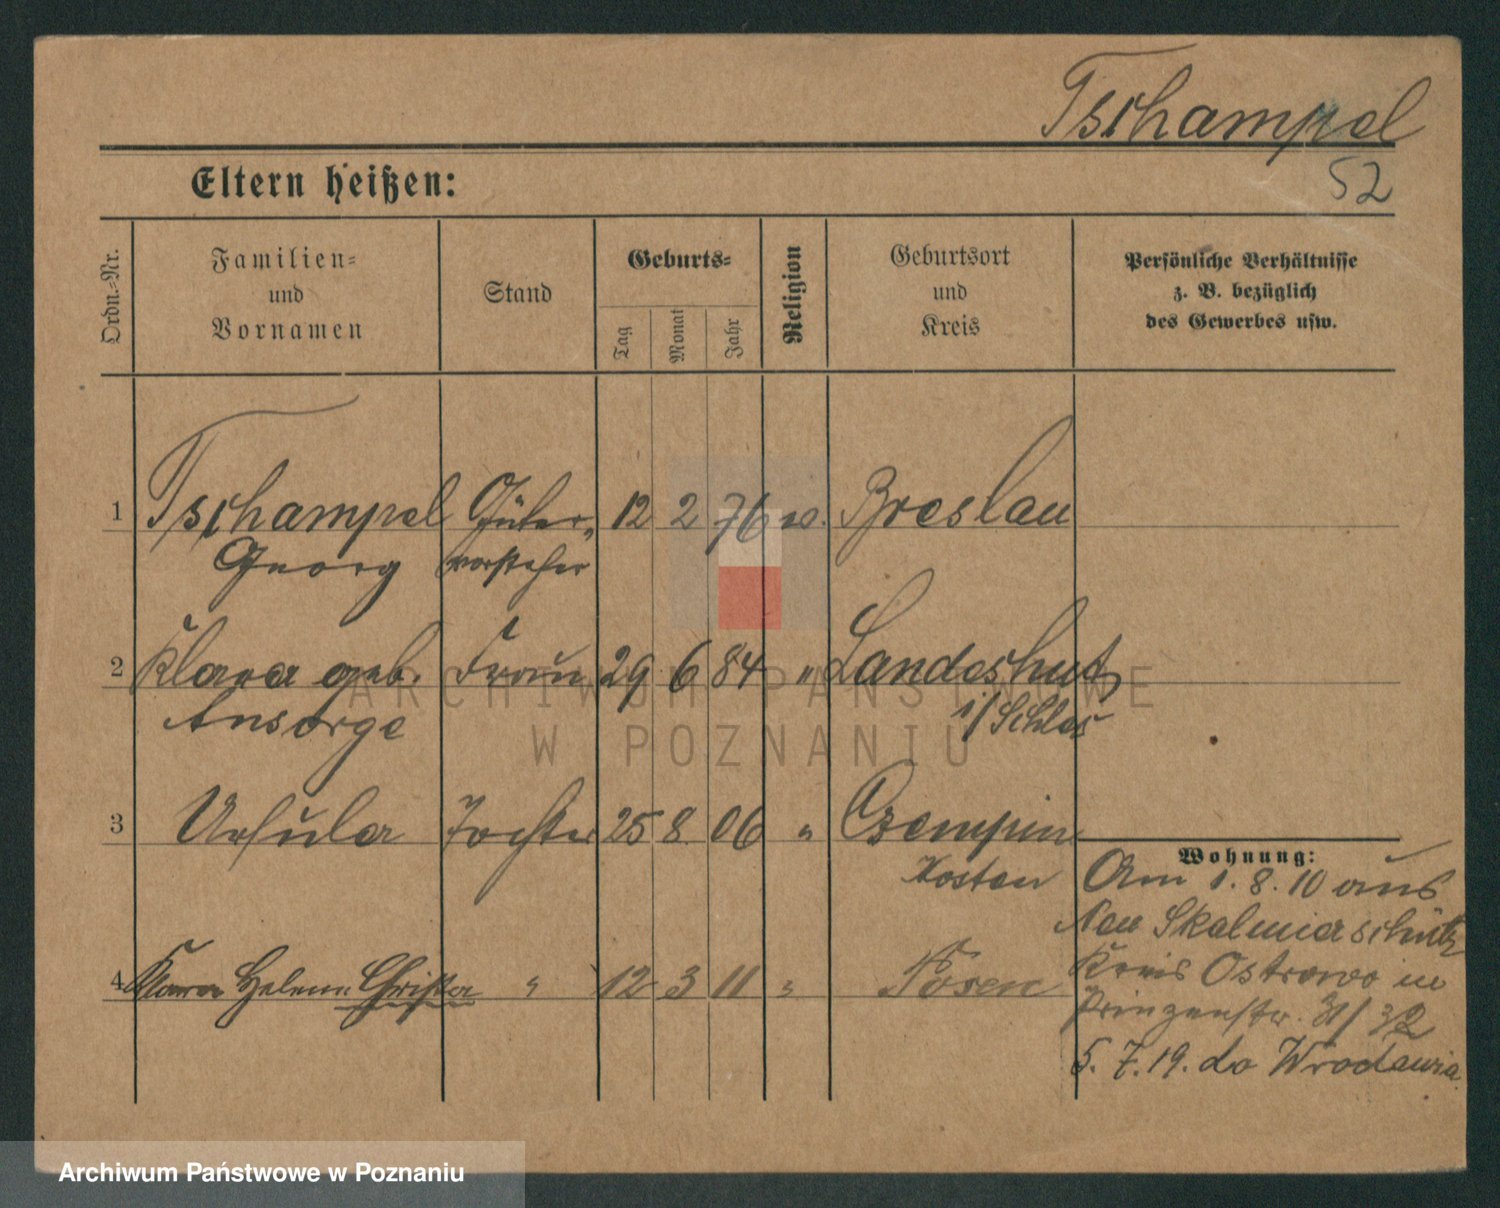 Tschampel
52
Eltern heißen:
Ordn.-Nr.
Familien-
und
Vornamen
Stand
Geburts-
Tag
Monat
Jahr
Religion
Geburtsort
und
Kreis
Persönliche Verhältnisse
z. B. bezüglich
des Gewerbes usw.
1 Tschampel Güter- 12 2 76 Breslau
Georg vorsteher
2 Klara geb. Frau 29 6 84 " Landeshut
Ansorge i/Schles
3 Ursula Tochter 25 8 06 " Czempin
Kosten
4 Klara Helene Christa " 12 3 11 " Posen
Wohnung:
Am 1. 8. 10 aus
Neu Skalmierschütz
Kreis Ostrowo in
Prinzenstr. 31/32
5. 7. 19. do Wrocławia
ARCHIWUM PAŃSTWOWE
W POZNANIU
Archiwum Państwowe w Poznaniu